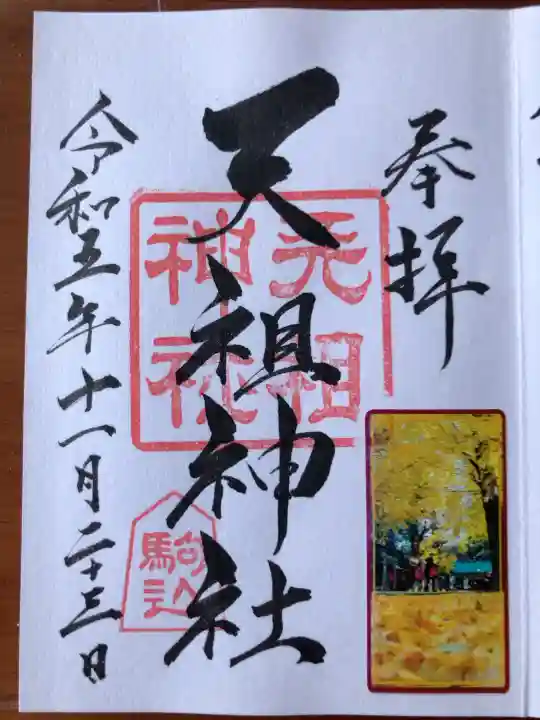 奉拝
天祖神社
天祖
神社
駒込
令和五年十一月二十三日